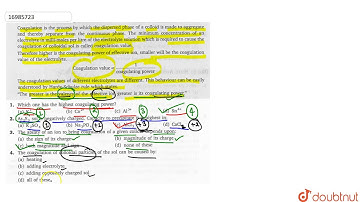 16985723
Coagulation is the process by which the dispersed phase of a colloid is made to aggregate
and thereby separate from the continuous phase. The minimum concentration of an
electrolyte in milli-moles per litre of the electrolyte solution which is required to cause the
coagulation of colloidal sol is called coagulation value.
Therefore higher is the coagulating power of effective ion, smaller will be the coagulation
value of the electrolyte.
Coagulation value ∝ 1/coagulating power
The coagulation values of different electrolytes are different. This behaviour can be easily
understood by Hardy-Schulze rule which states
"The greater is the valency of the effective ion greater is its coagulating power."
1. Which one has the highest coagulating power?
(b) Ca²⁺ (c) Al³⁺ (d) Sn⁴⁺
2. As₂S₃ sol is negatively charged. Capacity to precipitate is highest in
(b) Na₃PO₄
3. The ability of an ion to bring coagulation of a given colloid depends upon:
(a) the sign of its charge (b) magnitude of its charge
(c) both magnitude and sign (d) none of these
4. The coagulation of colloidal particles of the sol can be caused by
(a) heating
(b) adding electrolyte
(c) adding oppositely charged sol
(d) all of these
doubtnut